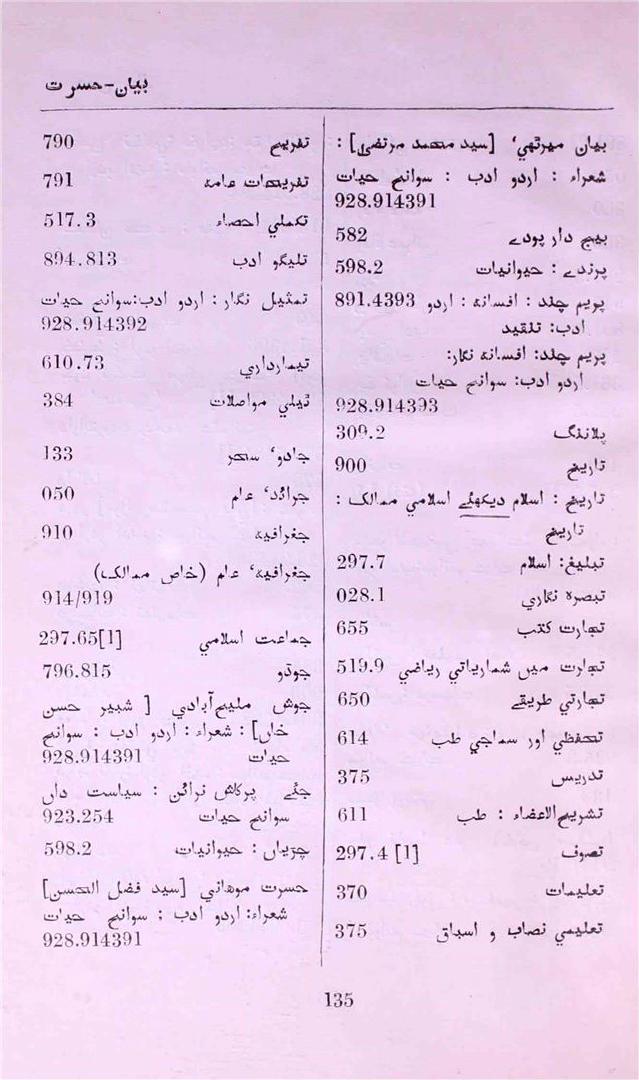 بیان-حسرت
بیان میرٹھی، [سید محمد مرتضیٰ] :
شعراء : اردو ادب : سوانح حیات
928.914391
بیج دار پودے 582
پرندے : حیوانیات 598.2
پریم چند : افسانہ : اردو 891.4393
ادب: تنقید
پریم چند: افسانہ نگار:
اردو ادب: سوانح حیات
928.914393
پلاننگ 309.2
تاریخ 900
تاریخ : اسلام دیکھئے اسلامی ممالک :
تاریخ
تبلیغ: اسلام 297.7
تبصرہ نگاری 028.1
تجارت کتب 655
تجارت میں شماریاتی ریاضی 519.9
تجارتی طریقے 650
تحفظی اور سماجی طب 614
تدریس 375
تشریح الاعضاء : طب 611
تصوف 297.4 [1]
تعلیمات 370
تعلیمی نصاب و اسباق 375
تفریح 790
تفریحات عامہ 791
تکملی احصاء 517.3
تلیگو ادب 894.813
تمثیل نگار : اردو ادب:سوانح حیات
928.914392
تیمارداری 610.73
ٹیلی مواصلات 384
جادو، سحر 133
جرائد، عام 050
جغرافیہ 910
جغرافیہ، عام (خاص ممالک)
914/919
جماعت اسلامی 297.65[1]
جوڈو 796.815
جوش ملیح آبادی [ شبیر حسن
خاں] : شعراء : اردو ادب : سوانح
حیات 928.914391
جئے پرکاش نرائن : سیاست داں
سوانح حیات 923.254
چڑیاں : حیوانیات 598.2
حسرت موہانی [سید فضل الحسن]
شعراء: اردو ادب : سوانح حیات
928.914391
135